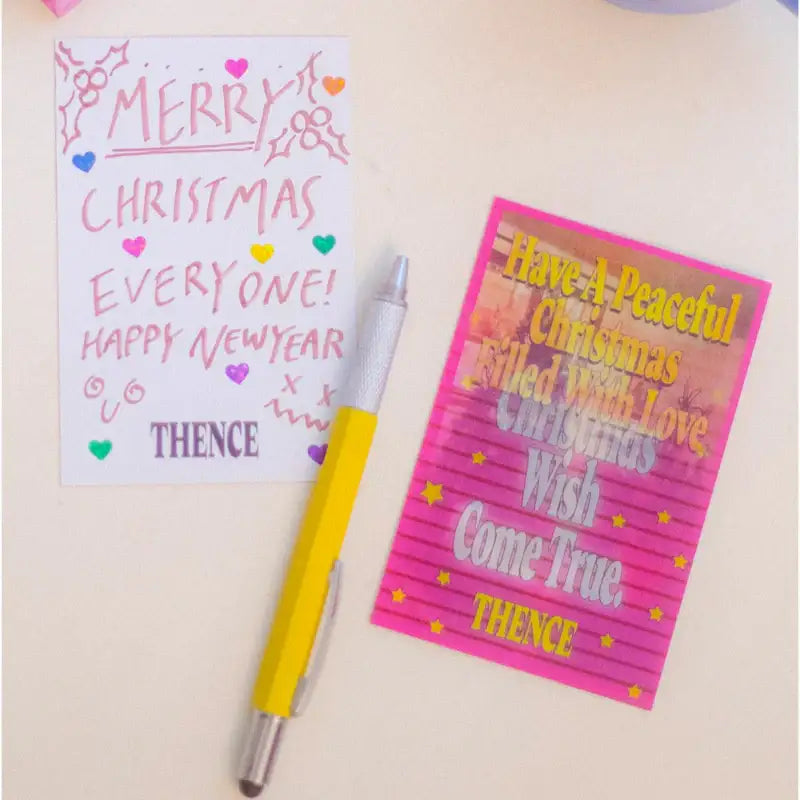 MERRY
CHRISTMAS
EVERYONE!
HAPPY NEWYEAR
THENCE
Have A Peaceful
Christmas
Filled With Love
Christmas
Wish
Come True.
THENCE